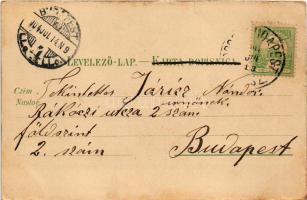 BUDAPEST
904 JUL. 14
LEVELEZŐ-LAP. — KARTA DOPISNICA.
BUDAPEST
Czim
Naslov
Tekintetes Járicz Nándor
urnának
Rákóczi utcza 2 szám
földszint
2. szám
Budapest